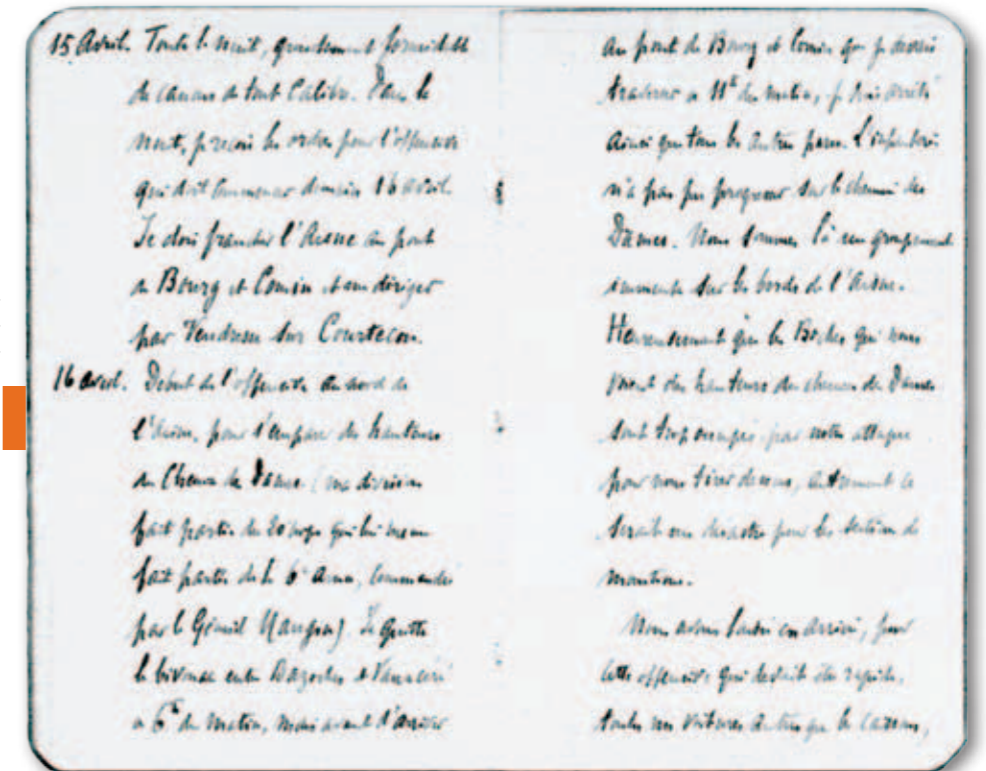 15 Avril. Toute la nuit, grondement formidable
de canons de tout calibre. Dans la
nuit, je reçois les ordres pour l'offensive
qui doit commencer demain 16 avril.
Je dois franchir l'Aisne au pont
de Bourg et Comin et me diriger
par Vendresse sur Courtecon.
16 avril. Début de l'offensive au nord de
l'Aisne, pour s'emparer des hauteurs
du Chemin des Dames (ma division
fait partie du 20 corps qui lui-même
fait partie de la 6e Armée, commandée
par le Général Mangin). Je quitte
le bivouac entre Bazoches et Vauxcéré
à 6h du matin, mais avant d'arriver
au pont de Bourg et Comin que je devais
traverser à 11h du matin, je suis arrêté
ainsi que tous les autres parcs. L'infanterie
n'a pas pu progresser sur le chemin des
Dames. Nous sommes là un groupement
sur les bords de l'Aisne.
Heureusement que les Boches qui nous
voient des hauteurs du chemin des Dames
sont trop occupés par notre attaque
pour nous tirer dessus, autrement ce
serait un désastre pour les sections de
munitions.
Nous avons laissé en arrière, pour
cette offensive qui devait être rapide,
toutes nos voitures autres que les caissons,